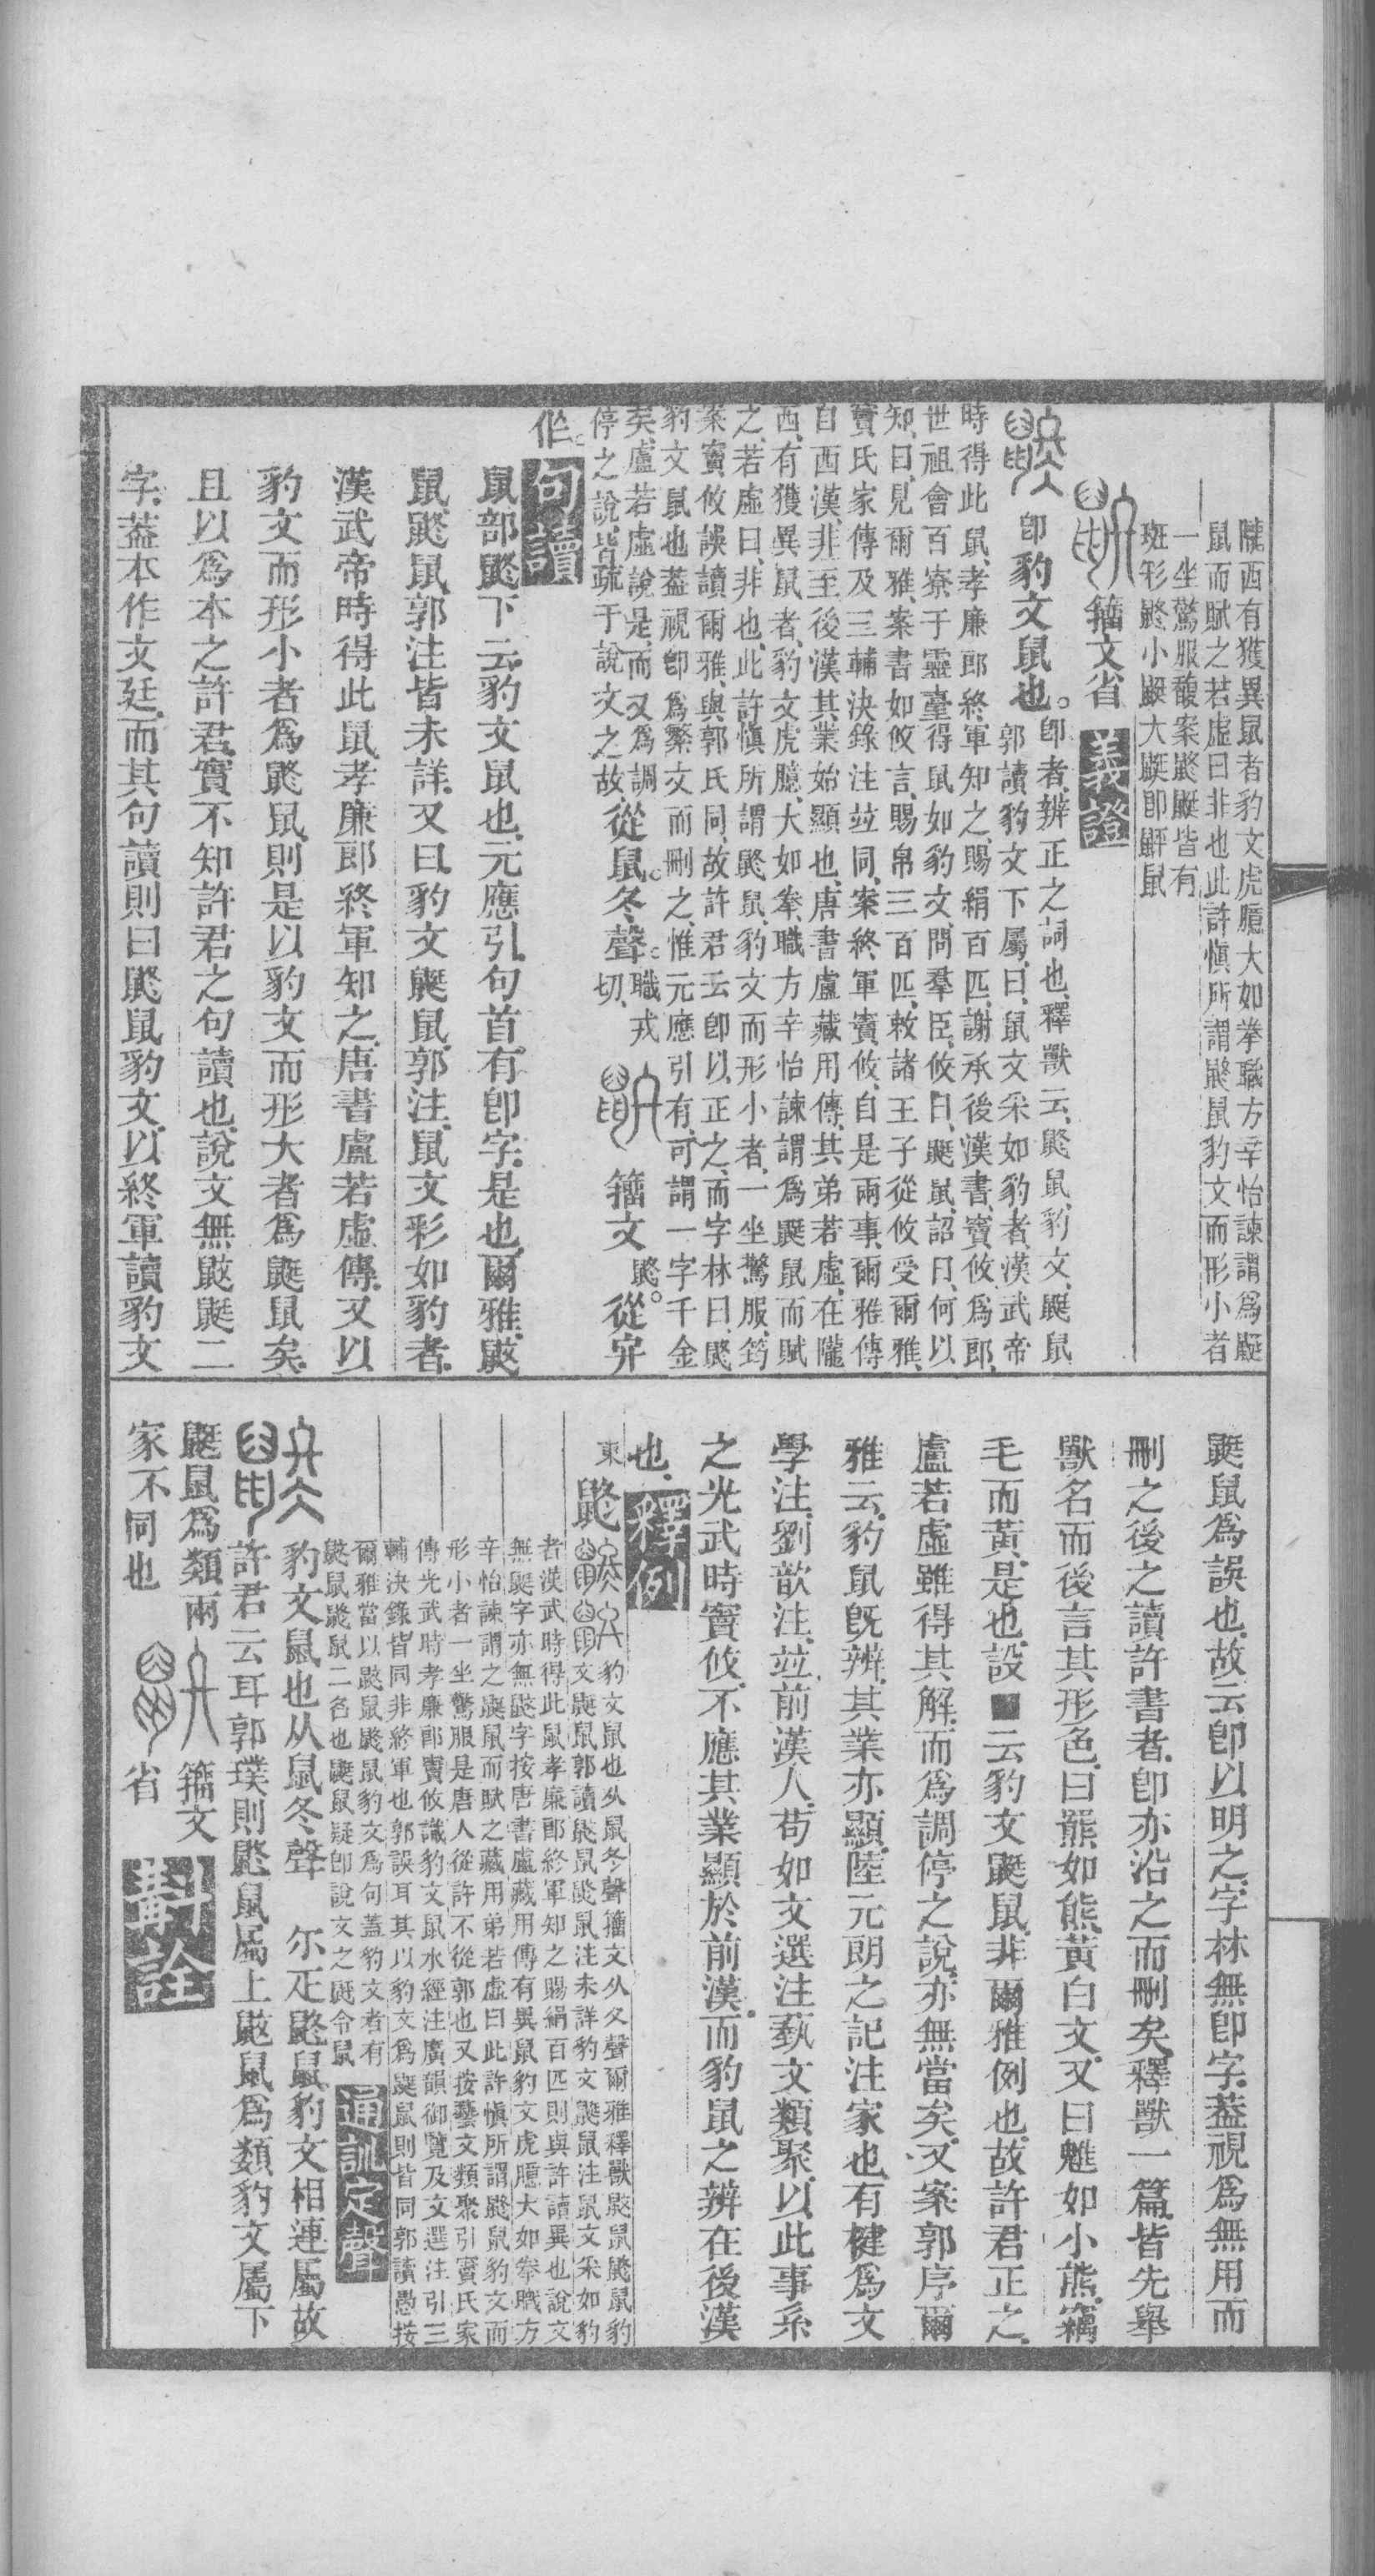 隴西有獲異鼠者豹文虎臆大如拳職方辛怡諫謂爲鼮
鼠而賦之若虛曰非也此許愼所謂鼨鼠豹文而形小者
一坐驚服馥案鼨鼮皆有
班形鼨小鼮大鼮卽鼾鼠
籀文省 義證
卽豹文鼠也。
卽者、辨正之詞也、釋獸云、鼨鼠、豹文、鼮鼠
郭讀豹文下屬、曰、鼠文采如豹者、漢武帝
時得此鼠、孝廉郎終軍知之、賜絹百匹、謝承後漢書、竇攸爲郎、
世祖會百寮于靈臺得鼠如豹文、問羣臣、攸曰、鼮鼠、詔曰、何以
知、曰、見爾雅、案書如攸言、賜帛三百匹、敕諸王子從攸受爾雅、
竇氏家傳及三輔決錄注竝同、案終軍竇攸、自是兩事、爾雅傳
自西漢、非至後漢其業始顯也、唐書盧藏用傳、其弟若虛、在隴
西、有獲異鼠者、豹文虎臆、大如拳、職方辛怡諫謂爲鼮鼠而賦
之、若虛曰、非也、此許愼所謂鼨鼠、豹文而形小者、一坐驚服、筠
案竇攸誤讀爾雅、與郭氏同、故許君云卽以正之、而字林曰、鼨、
豹文鼠也、蓋視卽爲繁文而刪之、惟元應引有、可謂一字千金
矣、盧若虛說是、而又爲調
停之說、皆疏于說文之故、
從鼠。冬聲。職戎切、 籀文鼨。從宂
作。 句讀
鼠部鼨下云、豹文鼠也、元應引、句首、有卽字、是也、爾雅、鼤
鼠、鼨鼠、郭注皆未詳、又曰、豹文鼮鼠、郭注、鼠文彩如豹者、
漢武帝時得此鼠、孝廉郎終軍知之、唐書盧若虛傳、又以
豹文而形小者爲鼨鼠、則是以豹文而形大者爲鼮鼠矣、
且以爲本之許君、實不知許君之句讀也、說文無鼤鼮二
字、蓋本作文廷、而其句讀則曰鼨鼠豹文、以終軍讀豹文
鼮鼠爲誤也、故云卽以明之、字林無卽字、蓋視爲無用而
刪之、後之讀許書者、卽亦沿之而刪矣、釋獸一篇、皆先舉
獸名而後言其形色、曰羆、如熊、黃白文、又曰魋、如小熊、竊
毛而黃、是也、設■云豹文鼮鼠、非爾雅例也、故許君正之、
盧若虛雖得其解、而爲調停之說、亦無當矣、又案郭序爾
雅云、豹鼠旣辨、其業亦顯、陸元朗之記注家也、有犍爲文
學注、劉歆注、竝前漢人、苟如文選注、藝文類聚、以此事系
之光武時竇攸、不應其業顯於前漢、而豹鼠之辨在後漢
也、 釋例
東 鼨 豹文鼠也从鼠冬聲籀文从夂聲爾雅釋獸鼤鼠鼨鼠豹
文鼮鼠郭讀鼤鼠鼨鼠注未詳豹文鼮鼠注鼠文采如豹
者漢武時得此鼠孝廉郎終軍知之賜絹百匹則與許讀異也說文
無鼮字亦無鼤字按唐書盧藏用傳有異鼠豹文虎臆大如拳職方
辛怡諫謂之鼮鼠而賦之藏用弟若虛曰此許愼所謂鼨鼠豹文而
形小者一坐驚服是唐人從許不從郭也又按藝文類聚引竇氏家
傳光武時孝廉郎竇攸識豹文鼠水經注廣韻御覽及文選注引三
輔決錄皆同非終軍也郭誤耳其以豹文爲鼮鼠則皆同郭讀愚按
爾雅當以鼤鼠鼨鼠豹文爲句蓋豹文者有
鼤鼠鼨鼠二名也鼮鼠疑卽說文之䶄令鼠 通訓定聲
豹文鼠也从鼠冬聲 尒疋鼨鼠豹文相連屬故
許君云耳郭璞則鼨鼠屬上鼤鼠爲類豹文屬下
鼮鼠爲類兩 籀文
家不同也 省 斠詮